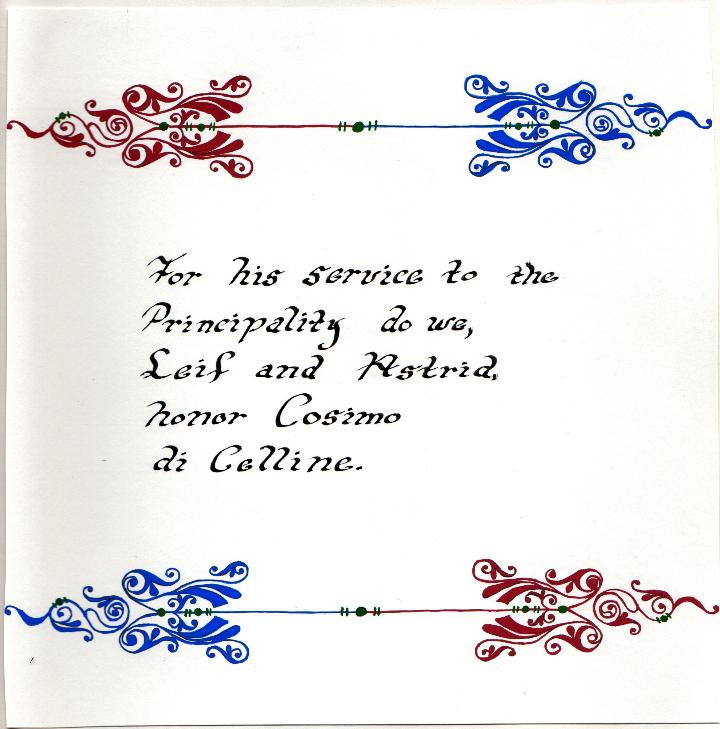 For his service to the
Principality do we,
Leif and Astrid,
honor Cosimo
di Celline.